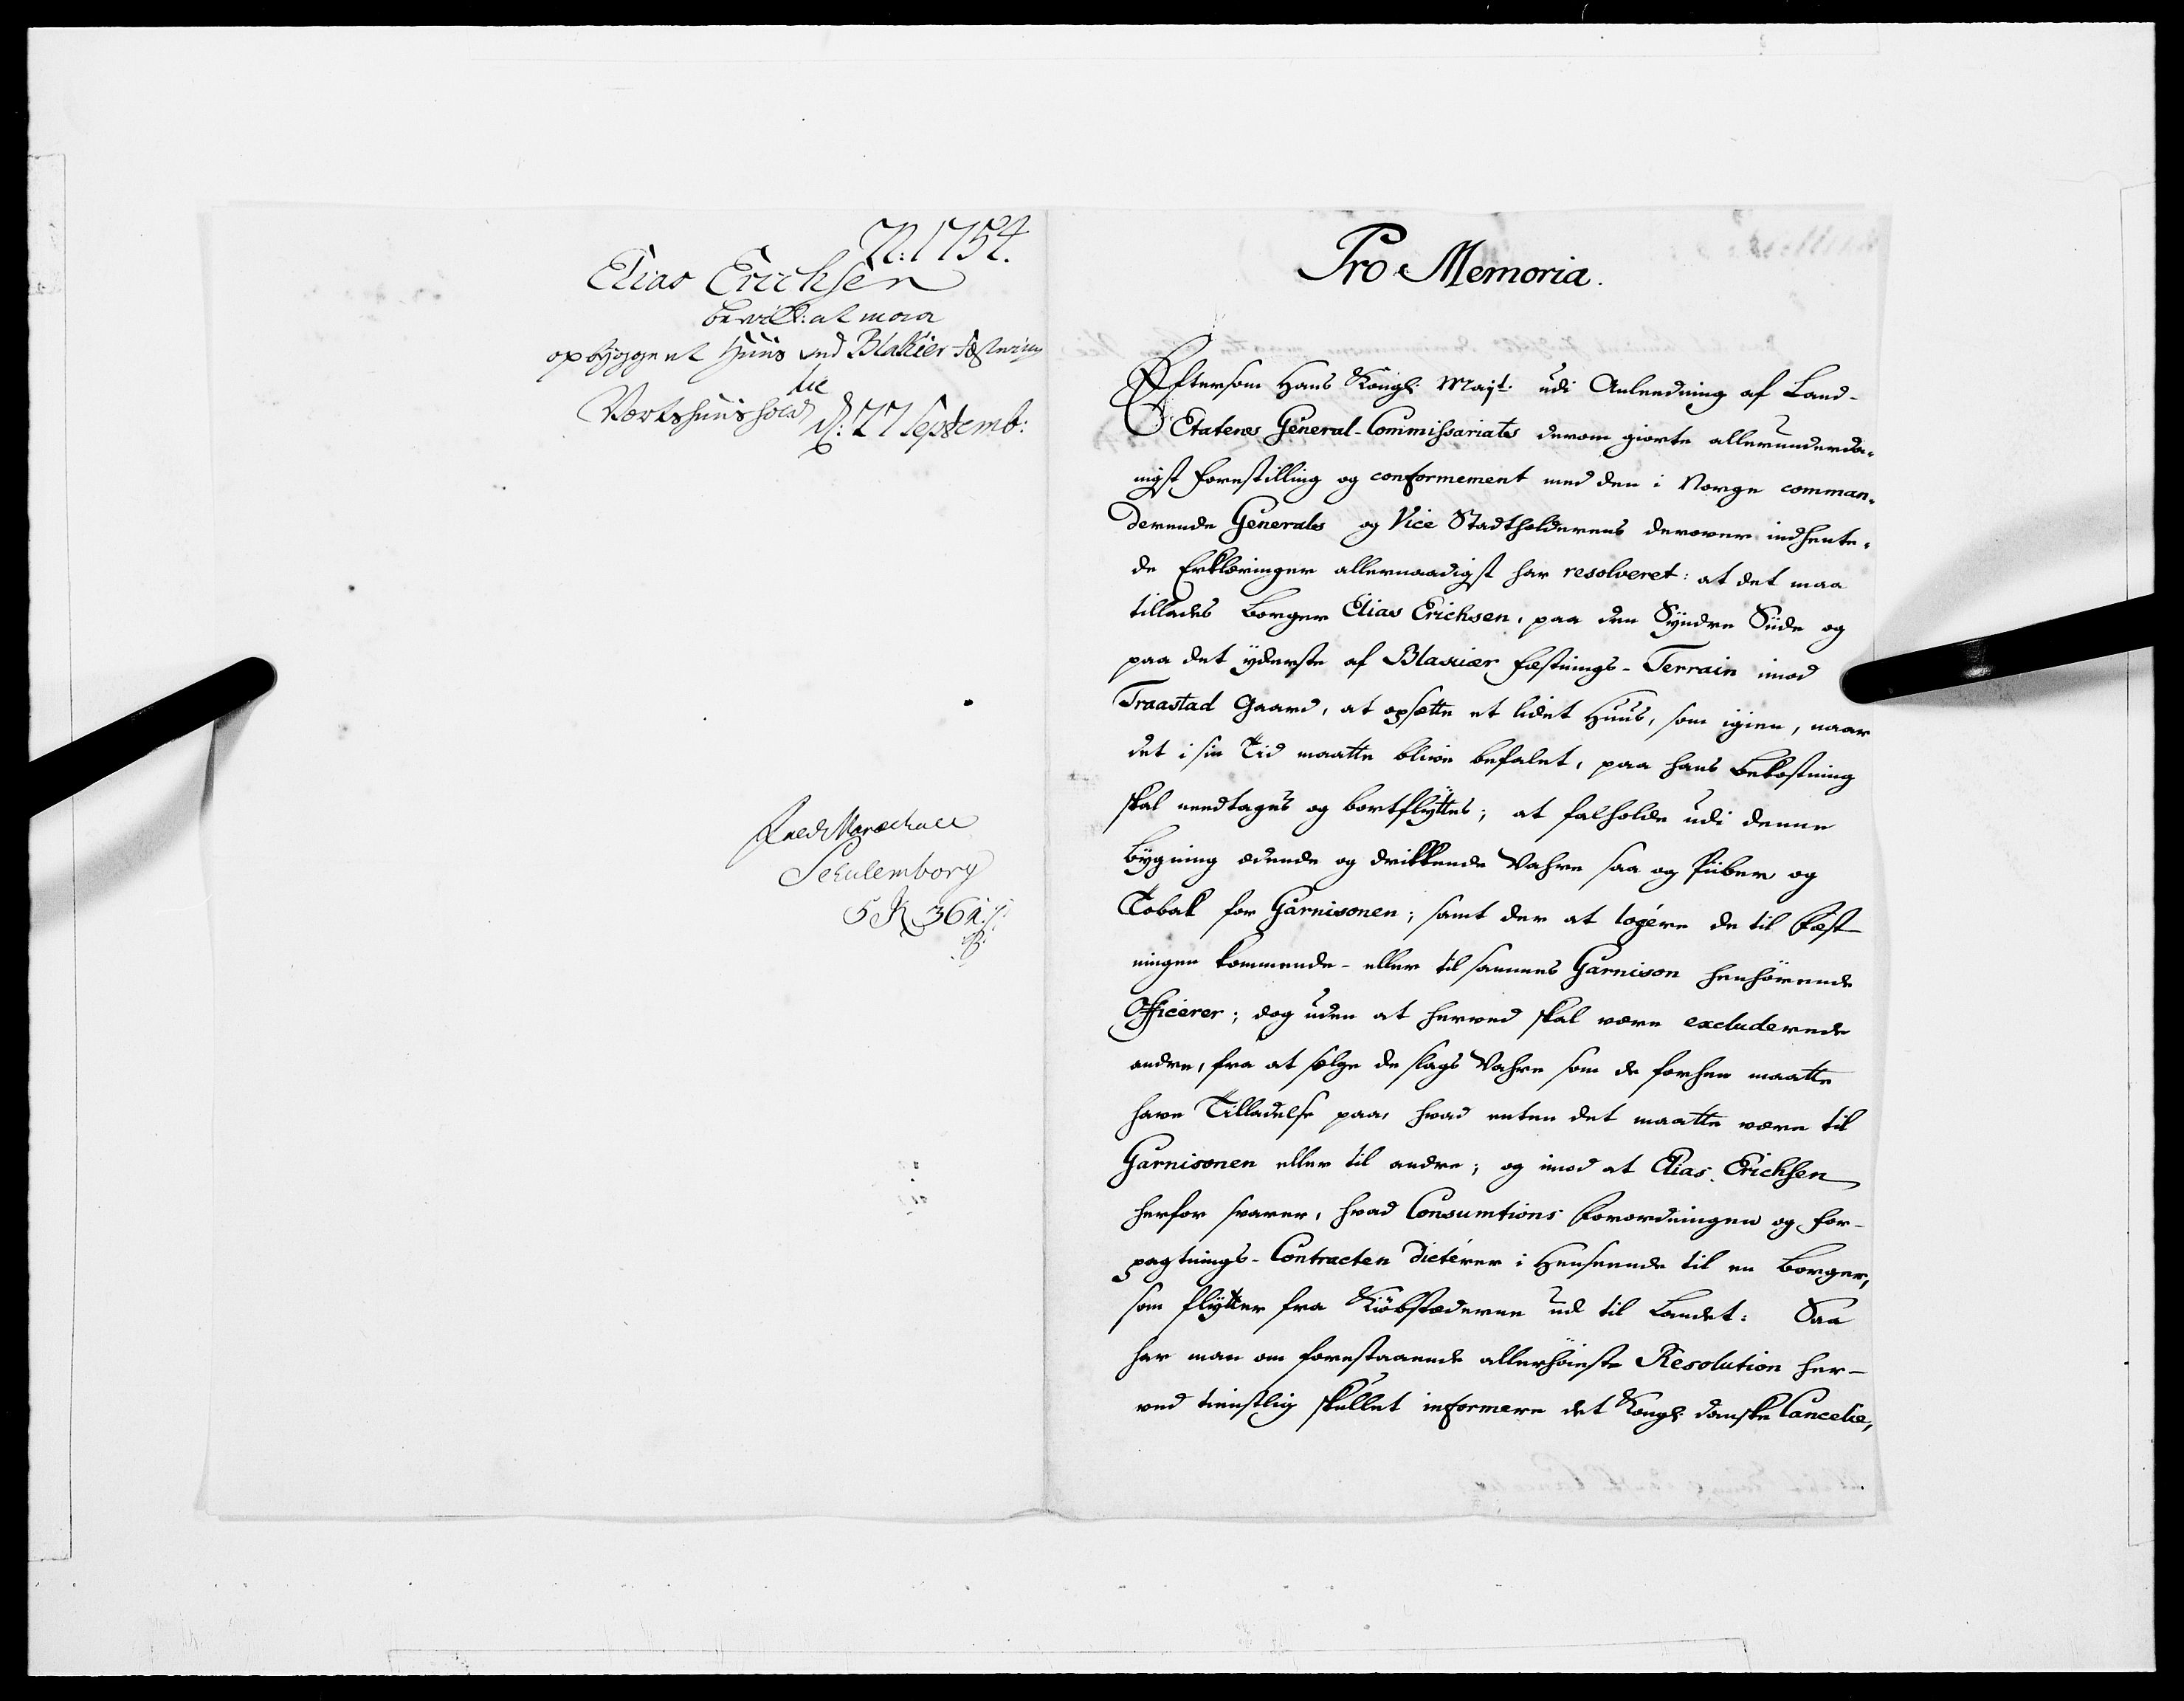 N: 1754.
Elias Erichsen
bevill: at maa
opbygge et Huus ved Blakier Fæstning
til
Vertshuushold d: 27 Septemb:
Feldt Marschall
Schulemborg
5 R 364
Pro Memoria.
Eftersom Hans Kongl: Mayt: udi Anleedning af Land-
Etatens General-Commissariats derom giorte allerunderda-
nigst Forestilling og conformement med den i Norge comman-
derende Generals og Vice Stadtholderens derover indhente-
de Erklæringer allernaadigst har resolveret: at det maa
tillades Borger Elias Erichsen, paa den Syndre Siide og
paa det yderste af Blakier Fæstnings-Terrain imod
Traastad Gaard, at opsætte et lidet Huus, som igien, naar
det i sin Tid maatte blive befalet, paa hans Bekostning
skal needtages og bortflyttes; at falholde udi denne
Bygning ædende og drikkende Vahre saa og Piiber og
Tobak for Garnisonen; samt der at logére de til Fæst-
ningen kommende- eller til sammes Garnison henhörende
Officerer; dog uden at herved skal være excluderede
andre, fra at sælge de slags Vahre som de forhen maatte
have Tilladelse paa, hvad enten det maatte være til
Garnisonen eller til andre; og imod at Elias Erichsen
herfor svarer, hvad Consumtions Forordningen og For-
pagtnings-Contracten dictérer i Henseende til en Borger,
som flytter fra Kiöbstæderne ud til Landet: Saa
har man om forestaaende allerhöieste Resolution her-
ved tienstlig skullet informere det Kongl: danske Cancelie,